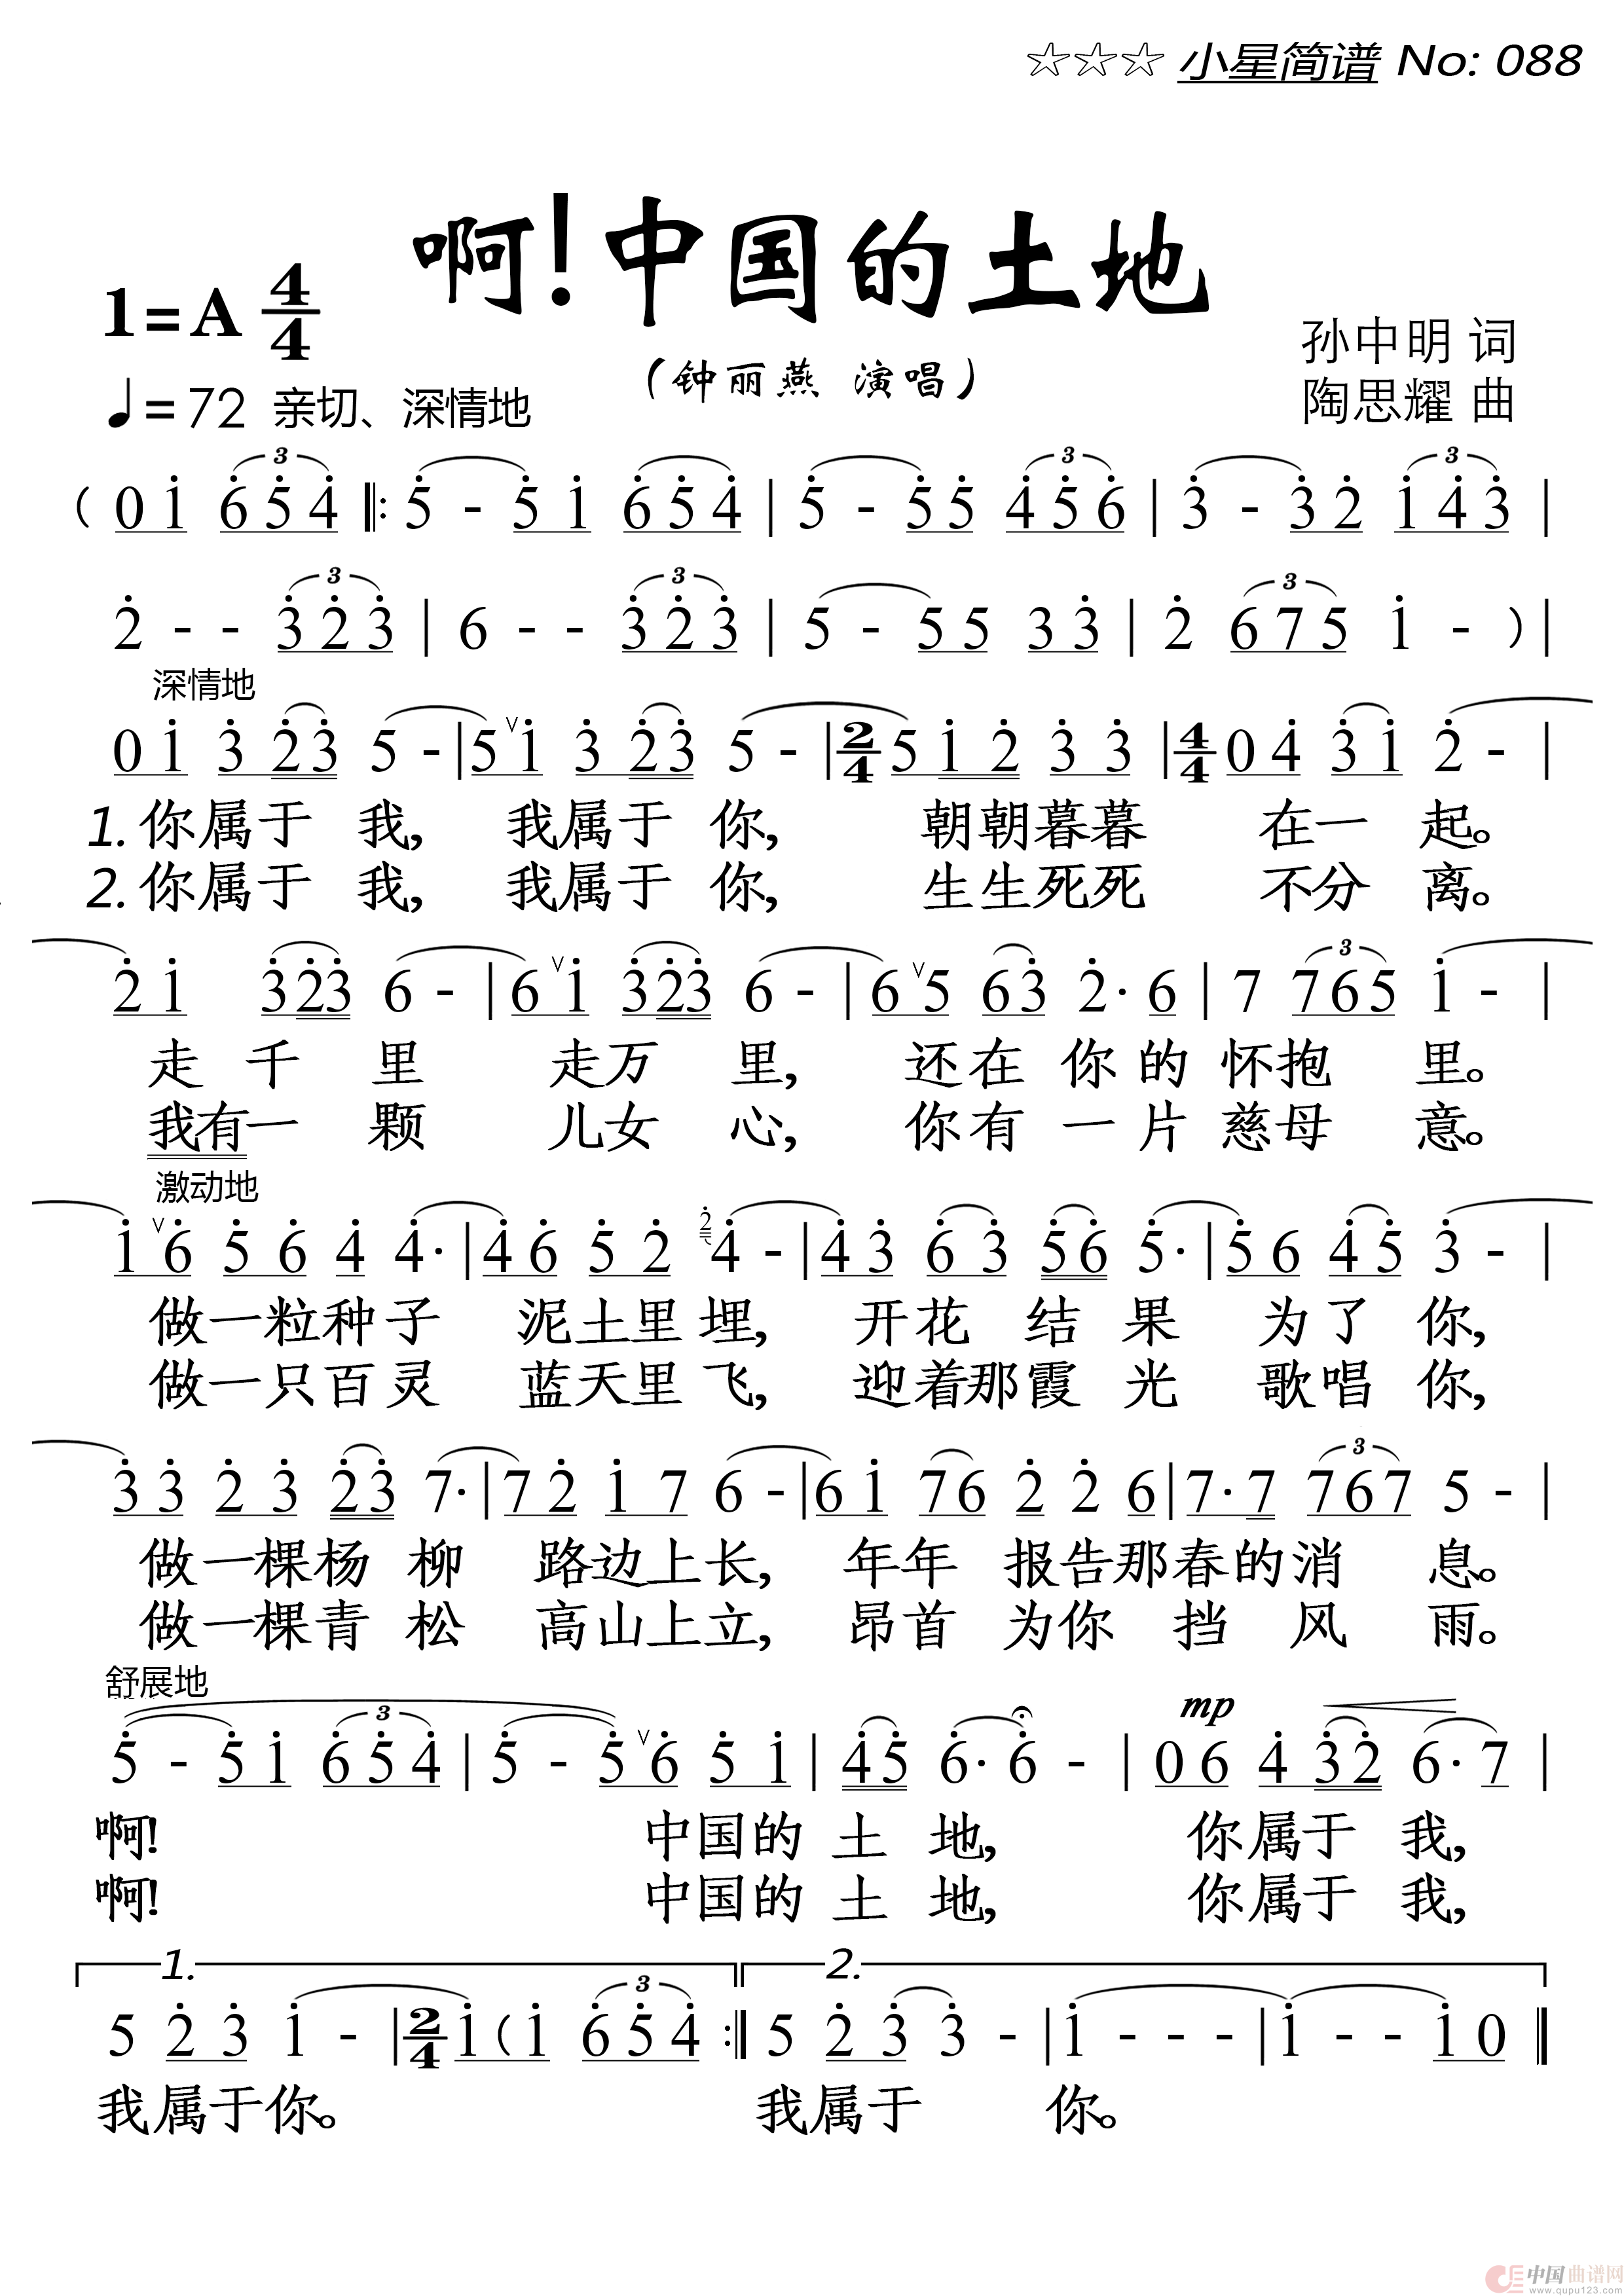 ☆☆☆ 小星简谱 No: 088
啊!中国的土地
1=A 4/4
(钟丽燕 演唱)
孙中明 词
♩=72 亲切、深情地
陶思耀 曲
( 0 1̇ 3 6̇ 5̇ 4̇ ‖: 5̇ - 5̇ 1̇ 6̇ 5̇ 4̇ | 5̇ - 5̇ 5̇ 3 4̇ 5̇ 6̇ | 3̇ - 3̇ 2̇ 3 1̇ 4̇ 3̇ |
2̇ - - 3 3̇ 2̇ 3̇ | 6 - - 3 3̇ 2̇ 3̇ | 5 - 5 5 3 3̇ | 2̇ 3 6 7 5 1̇ - ) |
深情地
0 1̇ 3̇ 2̇ 3̇ 5 - | 5 ∨ 1̇ 3̇ 2̇ 3̇ 5 - | 2/4 5 1̇ 2̇ 3̇ 3̇ | 4/4 0 4̇ 3̇ 1̇ 2̇ - |
1. 你属于 我, 我属于 你, 朝朝暮暮 在一 起。
2. 你属于 我, 我属于 你, 生生死死 不分 离。
2̇ 1̇ 3̇ 2̇ 3̇ 6 - | 6 ∨ 1̇ 3̇ 2̇ 3̇ 6 - | 6 ∨ 5 6 3̇ 2̇· 6 | 7 3 7 6 5 1̇ - |
走 千 里 走万 里, 还在 你 的 怀抱 里。
我有一 颗 儿女 心, 你有 一 片 慈母 意。
激动地
1̇ ∨ 6̇ 5̇ 6̇ 4̇ 4̇· | 4̇ 6̇ 5̇ 2̇ 2̇ 4̇ - | 4̇ 3̇ 6̇ 3̇ 5̇ 6̇ 5̇· | 5̇ 6 4̇ 5̇ 3̇ - |
做一粒种子 泥土里埋, 开花 结 果 为了 你,
做一只百灵 蓝天里飞, 迎着那霞 光 歌唱 你,
3̇ 3̇ 2̇ 3̇ 2̇ 3̇ 7· | 7 2̇ 1̇ 7 6 - | 6 1̇ 7 6 2̇ 2̇ 6 | 7· 7 3 7 6 7 5 - |
做一棵杨 柳 路边上长, 年年 报告那春的消 息。
做一棵青 松 高山上立, 昂首 为你 挡 风 雨。
舒展地
mp
5̇ - 5̇ 1̇ 3 6̇ 5̇ 4̇ | 5̇ - 5̇ ∨ 6̇ 5̇ 1̇ | 4̇ 5̇ 6̇· 6̇ - | 0 6 4̇ 3̇ 2̇ 6· 7 |
啊! 中国的 土 地, 你属于 我,
啊! 中国的 土 地, 你属于 我,
1. 2.
5 2̇ 3̇ 1̇ - | 2/4 1̇ ( 1̇ 3 6̇ 5̇ 4̇ :‖ 5 2̇ 3̇ 3̇ - | 1̇ - - - | 1̇ - - 1̇ 0 ‖
我属于你。 我属于 你。
中国曲谱网
www.qupu123.com